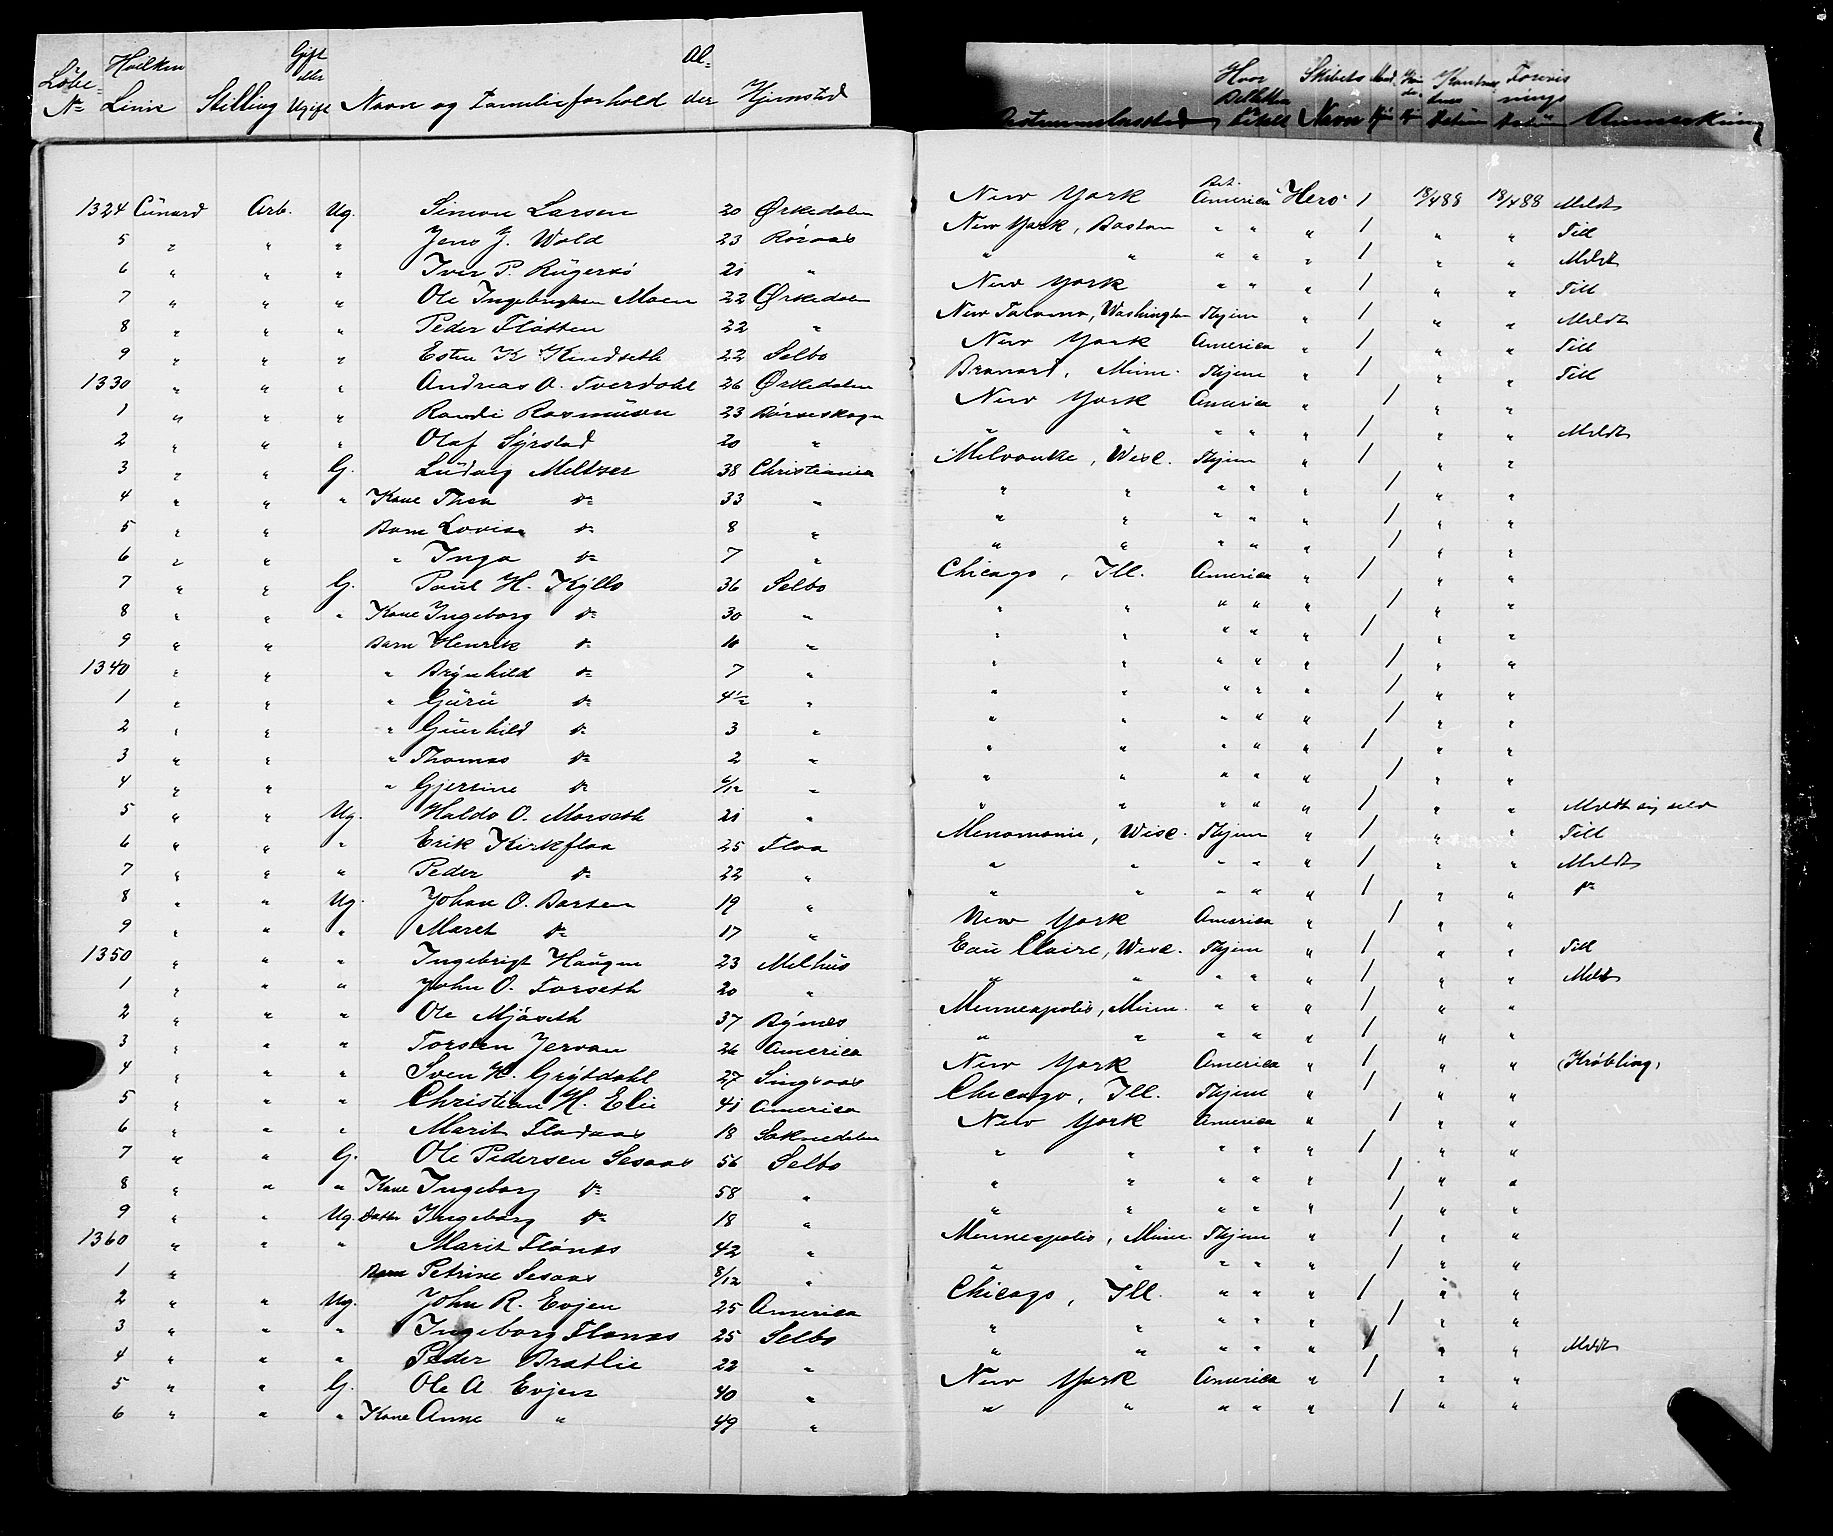 Löbe- Hvilken Gift Al- Hvor Skibets Mand Forvis
No Linie Stilling eller Ugift Navn og Familieforhold der Hjemsted Bestemmelsessted Billetten Navn nings Anmerkning
1324 Cunard Arb. Ug. Simon Larsen 20 Ørkedalen New York Bet. America Hero 1 18/4 88 18/4 88 Meldt
5 " " " Jens J. Wold 23 Röraas New York, Boston " " " 1 " " Till
6 " " " Iver P. 21 " " " " " " 1 " " Meldt
7 " " " Ole Ingebrigtsen Moen 22 Ørkedalen New York " " " 1 " " Till
8 " " " Peder Flåtten 22 " New Tacoma, Washington Hjem " 1 " " Meldt
9 " " " Esten K Kjendseth 22 Selbo New York America " 1 " " Till
1330 " " " Andreas O. Tverdahl 26 Ørkedalen Hjem " 1 " " Till
1 " " " Randi Rasmusen 23 Börseskogn New York America " 1 " "
2 " " " Olaf Syrstad 20 " " " " " " 1 " " Meldt
3 " " G. Ludvig Meltzer 38 Christiania Milvaukee, Wisc. Hjem " 1 " "
4 " " " Kone Thea do 33 " " " " " " 1 " "
5 " " Barn Lovise do 8 " " " " " " 1 " "
6 " " " Inga do 7 " " " " " " 1 " "
7 " " G. Paul H. Kyllo 36 Selbo Chicago, Ill. America " 1 " "
8 " " " Kone Ingeborg do 30 " " " " " " 1 " "
9 " " Barn Henrik do 10 " " " " " " 1 " "
1340 " " " Brynhild do 7 " " " " " " 1 " "
1 " " " Guru do 4 1/2 " " " " " " 1 " "
2 " " " Gunhild do 3 " " " " " " 1 " "
3 " " " Thomas do 2 " " " " " " 1 " "
4 " " " Gjertine do 6/12 " " " " " " 1 " "
5 " " Ug. Haldo O. Morseth 21 " " " " " " 1 " " Meldt sig selv
6 " " " Erik Kirkflaa 25 Flaa Menomonie, Wisc. Hjem " 1 " " Till
7 " " " Peder do 22 " " " " " " 1 " " Meldt
8 " " Ug. Johan O. Barten 19 " " " " " " 1 " " do
9 " " " Maret do 17 " New York America " 1 " "
1350 " " " Ingebrigt Haugen 23 Melhus Eau Claire, Wisc. Hjem " 1 " " Till
1 " " " John O. Forseth 20 " " " " " " 1 " " Meldt
2 " " " Ole Mjöseth 37 Bynes Minneapolis, Minn. " " " 1 " "
3 " " " Torsten Jervan 26 America " " " " " 1 " "
4 " " " Sven H. Grytdahl 27 Singsaas New York America " 1 " " (Kröbling)
5 " " " Christian H. Elie 41 America Chicago, Ill. Hjem " 1 " "
6 " " " Marit Flodaas 18 Soknedalen New York America " 1 " "
7 " " G. Ole Pedersen Sesaas 56 Selbo " " " " " 1 " "
8 " " " Kone Ingeborg do 58 " " " " " " 1 " "
9 " " Ug. Datter Ingeborg do 18 " " " " " " 1 " "
1360 " " " Marit Flönæs 42 " Minneapolis, Minn. Hjem " 1 " "
1 " Barn Petrine Sesaas 8/12 " " " " " " 1 " "
2 " " Ug. John R. Evjen 25 America Chicago, Ill. " " " 1 " "
3 " " " Ingeborg Flönæs 25 Selbo " " " " " 1 " "
4 " " " Peder Bratlie 22 " " " " " " 1 " " Meldt
5 " " G. Ole A Evjen 40 " New York America " 1 " "
6 " " " Kone Anne " 49 " " " " " " 1 " "